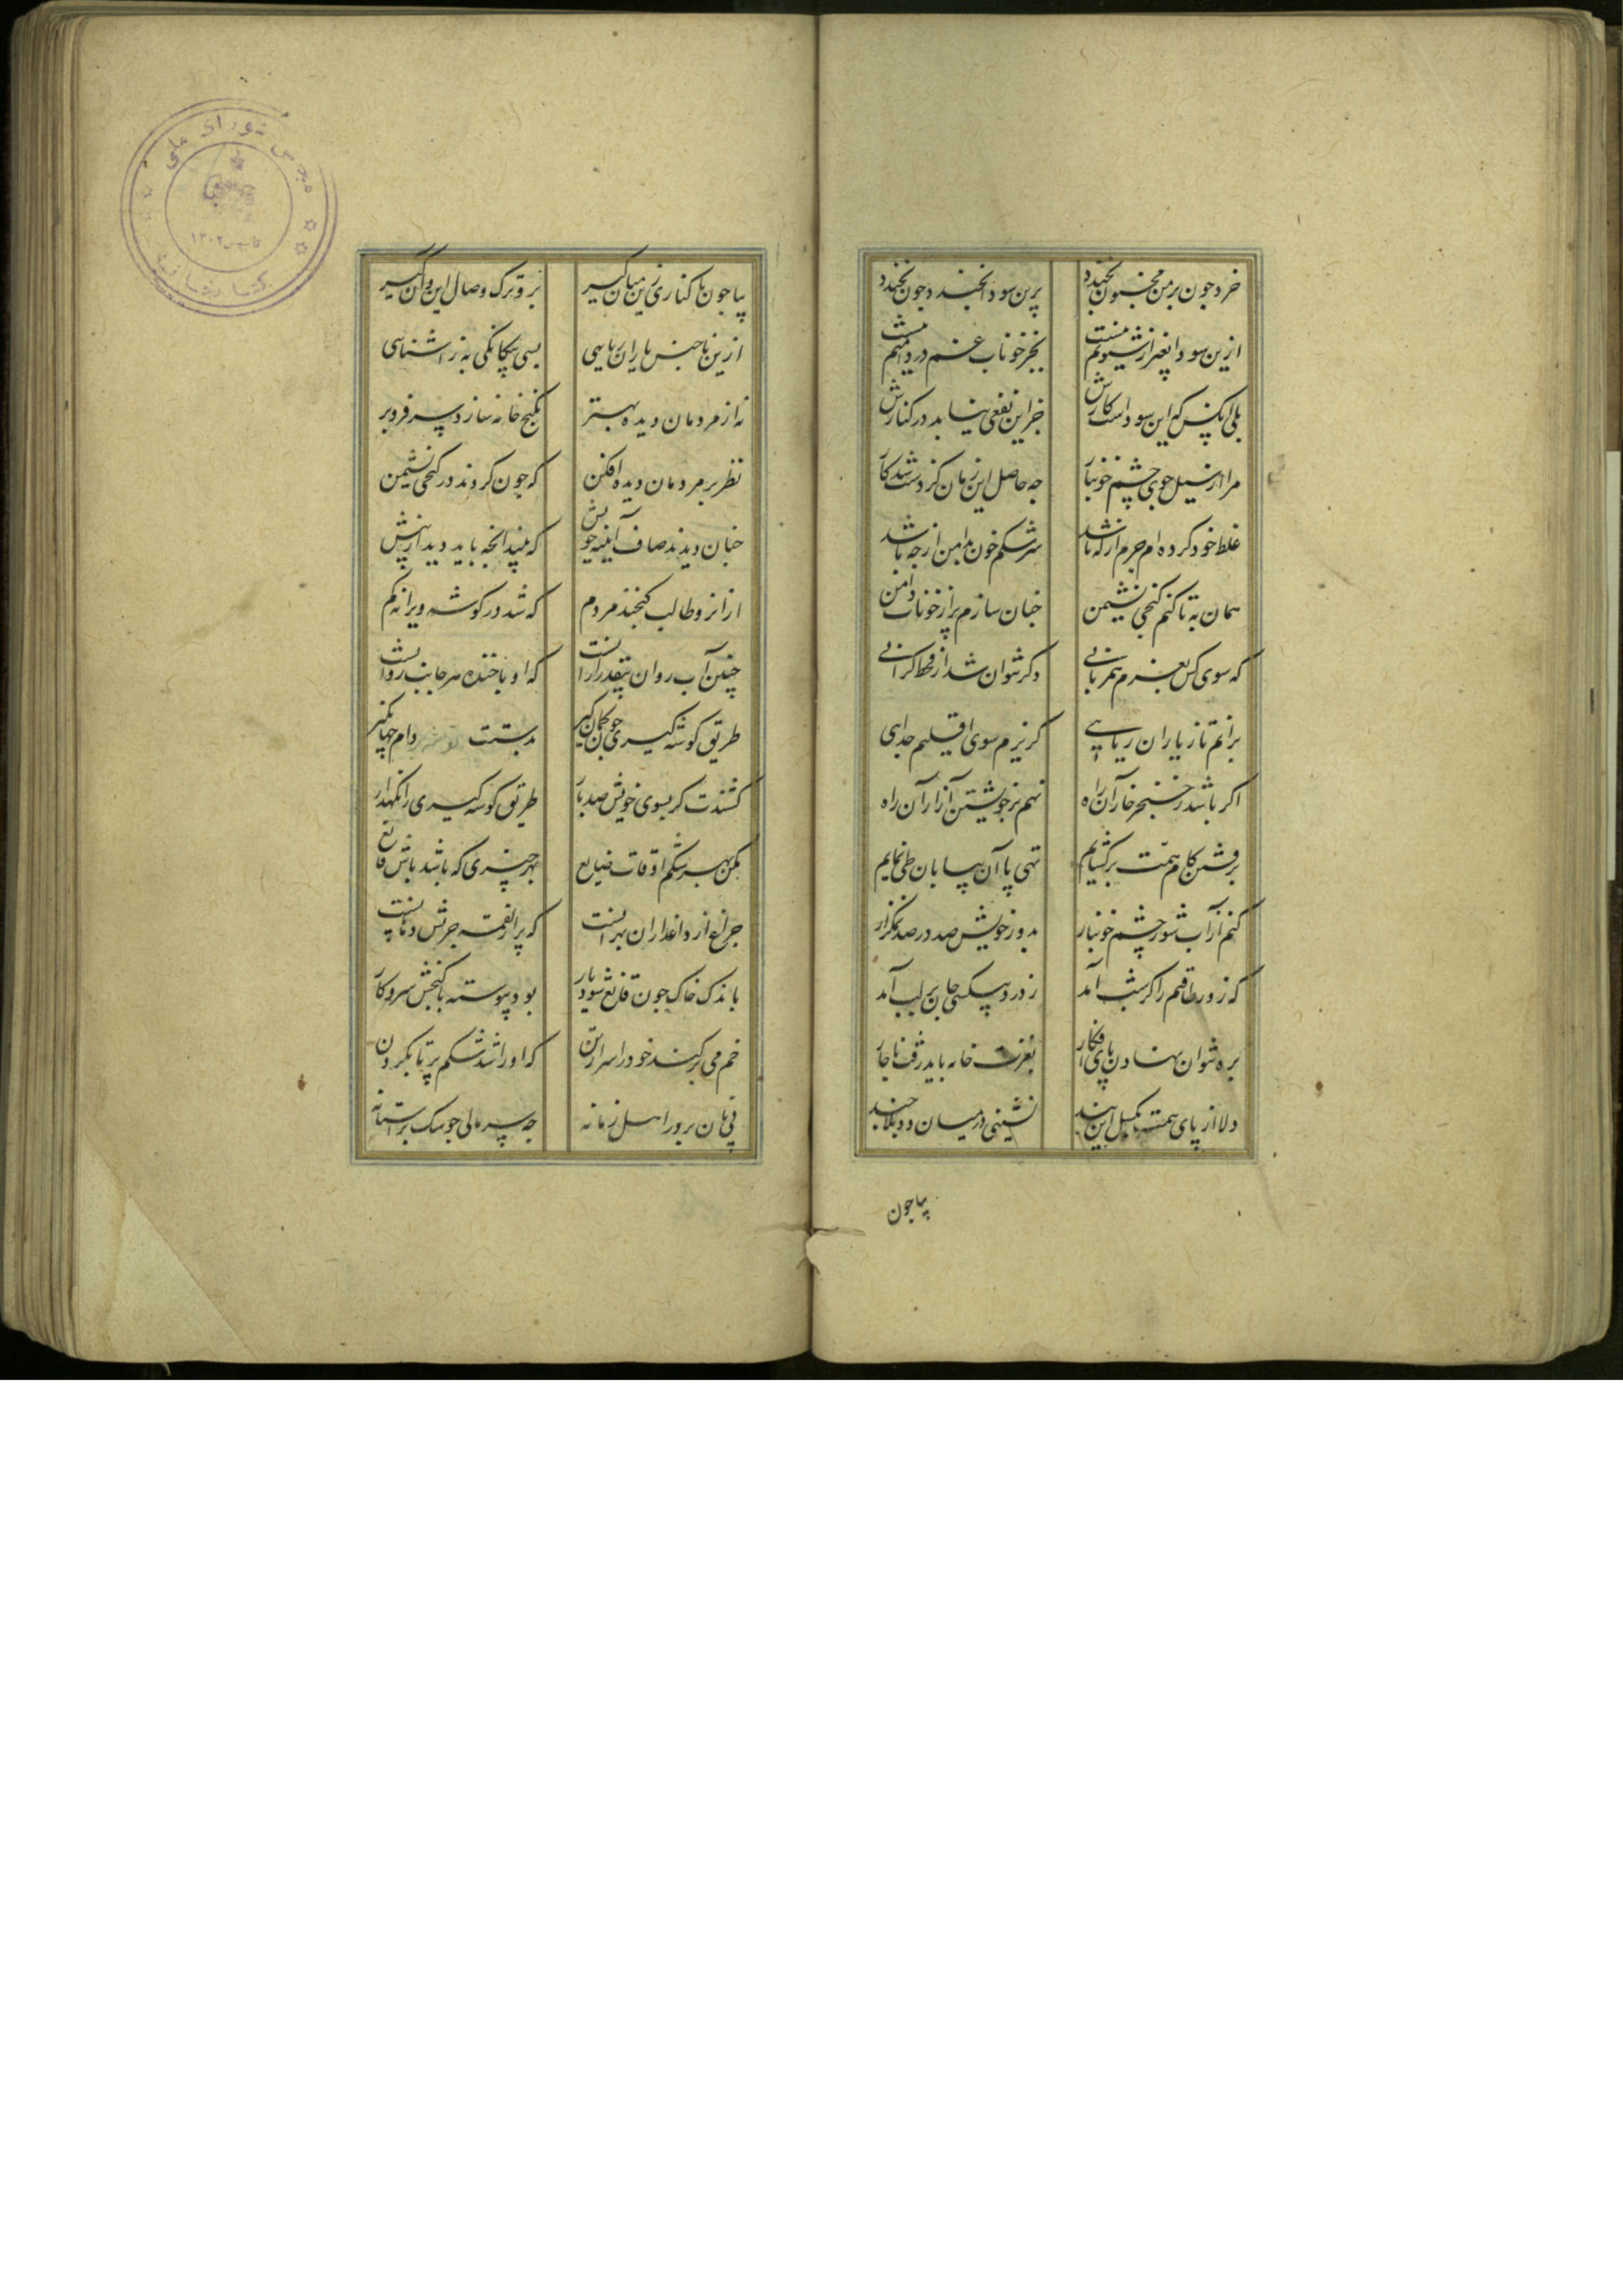 خرد چون بر من مجنون نخندد برین سودا نخندد چون نخندد
ازین سودا بغیر از شیونم نیست بجز خوناب غم در دامنم نیست
بلی آنکس که این سوداست کارش جز این نفعی نیاید در کنارش
مرا از سیل جوی چشم خونبار چه حاصل این زمان کز دست شد کار
غلط خود کرده‌ام جرم از که باشد سرشکم خون بدامن از چه باشد
همان به تا کنم کنجی نشیمن چنان سازم پر از خوناب دامن
که سوی کس بعزم همزبانی دگر نتوان شد از فرط گرانی
برانم تا ز یاران ریایی گریزم سوی اقلیم جدایی
اگر باشد ز خنجر خار آن راه نهم بر خویشتن آزار آن راه
برفتن کام همت برگشایم تهی پا آن بیابان طی نمایم
کنم از آب شور چشم خونبار بدور خویش صد در صد نمکزار
که زور طاقتم را کر شب آمد ز درد بیکسی جان بر لب آمد
بره نتوان نهادن پای افکار بغربت خانه باید رفت ناچار
دلا از پای همت بگسل این بند نشینی در میان دو بلا چند
بیا چون
بیا چون ما کناری زین میان گیر برو ترک وصال این و آن گیر
ازین ناجنس یاران ریایی بسی بیگانگی به ز آشنایی
نه از مردمان دیده بهتر بکنج خانه ساز و سر فرو بر
نظر بر مردمان دیده افکن که چون کردند در کنجی نشیمن
چنان دیدند صاف آیینه خویش که بینند آنچه باید دید از پیش
از آنرو طالب گنجند مردم که شد در گوشه ویرانه گم
چنین آب روان بیقدر از آنست که او با خنده هر جانب روانست
طریق گوشه گیری چون کمان گیر بدستت گوشه دام جهان گیر
کشندت گر بسوی خویش صد بار طریق گوشه گیری را نگهدار
مکن بهر شکم اوقات ضایع بهر چیزی که باشد باش قانع
چراغ از داغداران بهر آنست که پر از لقمه چربش دهانست
باندک خاک چون قانع شود مار بود پیوسته با گنجش سر و کار
خم می بر کند خود را سر از تن که او را شد شکم پر تا بگردن
پی نان بر در اهل زمانه چه سر مالی چو سگ بر آستانه
مجلس شورای ملی
تاسیس ۱۳۰۲
کتابخانه